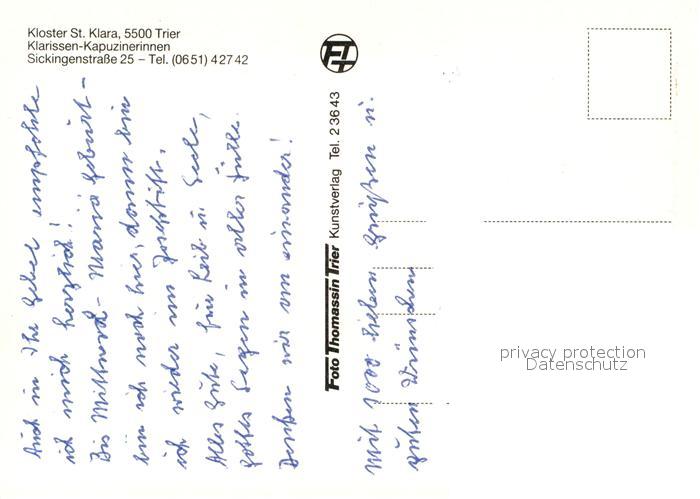 Kloster St. Klara, 5500 Trier
Klarissen-Kapuzinerinnen
Sickingenstraße 25 – Tel. (06 51) 4 27 42
Auch in Ihr Gebet empfehle
ich mich herzlich!
Bis Mittwoch - Mariä Geburt -
bin ich noch hier, dann bin
ich wieder im Josefstift.
Alles Gute, für Leib u. Seele,
Gottes Segen in aller Fülle.
Denken wir an einander!
Foto Thomassin Trier Kunstverlag Tel. 2 36 43
Mit 1000 lieben Grüßen u.
guten Wünschen
privacy protection
Datenschutz